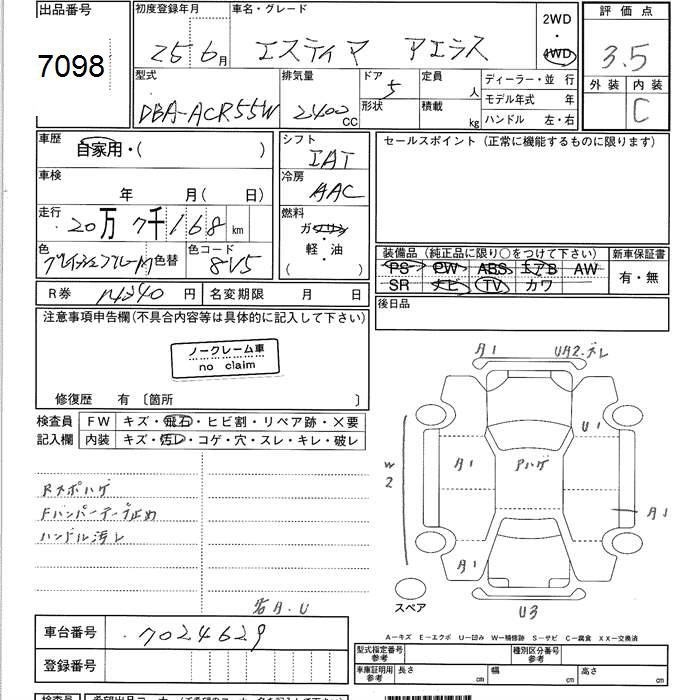 出品番号 初度登録年月 車名・グレード 2WD 評価点
7098 25年6月 エスティマ アエラス ・ 4WD 3.5
型式 排気量 ドア 定員 ディーラー・並行 外装 内装
DBA-ACR55W 2400cc 5 人 モデル年式 年 C
形状 積載 kg ハンドル 左・右
車歴 シフト セールスポイント (正常に機能するものに限ります)
自家用・( ) IAT
車検 冷房
年 月(日) AAC
走行 燃料
20万7千168km ガソリン
色 色替 色コード ・軽・油
8V5 ( )
装備品 (純正品に限り○をつけて下さい) 新車保証書
PS PW ABS エアB AW 有・無
SR ナビ TV カワ
R券 円 名変期限 月 日 後日品
注意事項申告欄(不具合内容等は具体的に記入して下さい)
ノークレーム車
no claim
修復歴 有 〔箇所 〕
検査員 FW キズ・飛石・ヒビ割・リペア跡・×要
記入欄 内装 キズ・汚レ・コゲ・穴・スレ・キレ・破レ
A1 UA2.ズレ
U1
W2 A1 Aハゲ
A1
A1
U3
スペア
Rメボハゲ
Fバンパーテープ止め
ハンドル汚レ
A-キズ E-エクボ U-凹み W-補修跡 S-サビ C-腐食 XX-交換済
車台番号 7024629
登録番号
型式指定番号 参考 種別区分番号 参考
車庫証明用 参考 長さ cm 幅 cm 高さ cm